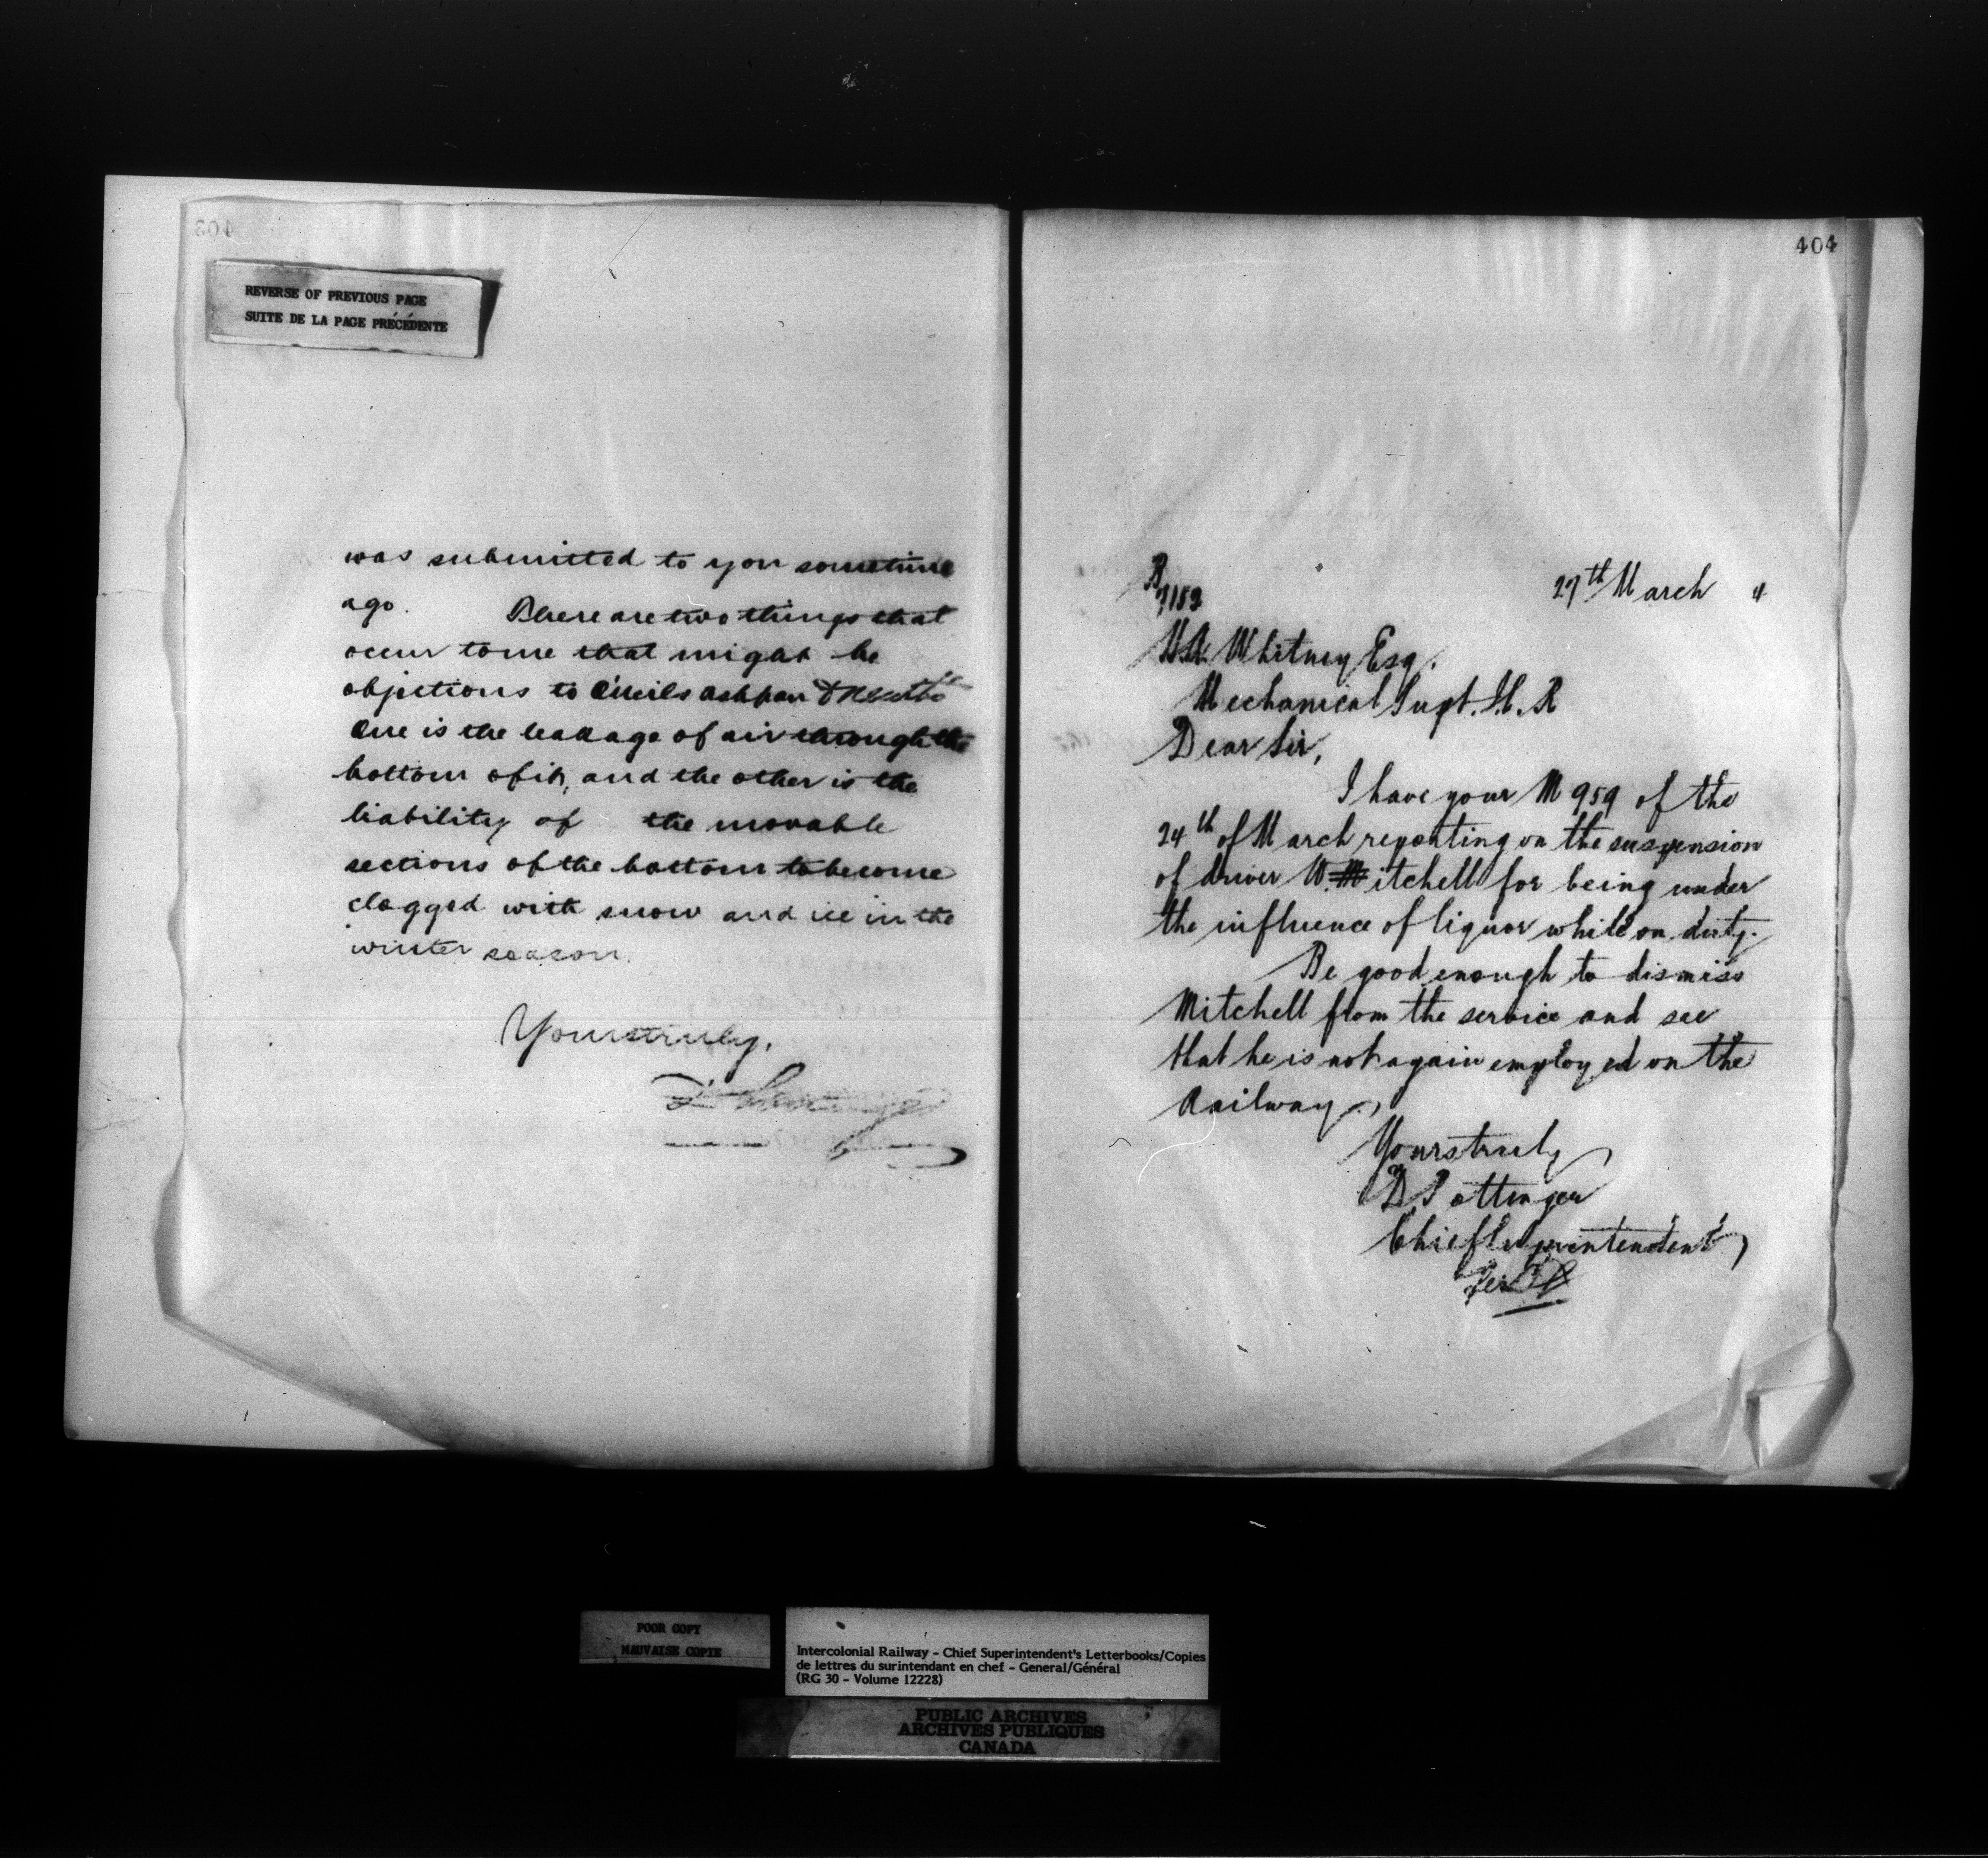 REVERSE OF PREVIOUS PAGE
SUITE DE LA PAGE PRÉCÉDENTE
was submitted to you sometime
ago. There are two things that
occur to me that might be
objections to O'Neils ashpan
One is the leakage of air through the
bottom of it, and the other is the
liability of the movable
sections of the bottom to become
clogged with snow and ice in the
winter season.
Yours truly,
404
R
7152
27th March 4
Whitney Esq.
Mechanical Supt. I.C.R
Dear Sir,
I have your M 959 of the
24th of March reporting on the suspension
of driver W. Mitchell for being under
the influence of liquor while on duty.
Be good enough to dismiss
Mitchell from the service and see
that he is not again employed on the
Railway.
Yours truly
D Pottinger
Chief Superintendent
Per
POOR COPY
MAUVAISE COPIE
Intercolonial Railway - Chief Superintendent's Letterbooks/Copies
de lettres du surintendant en chef - General/Général
(RG 30 - Volume 12228)
PUBLIC ARCHIVES
ARCHIVES PUBLIQUES
CANADA